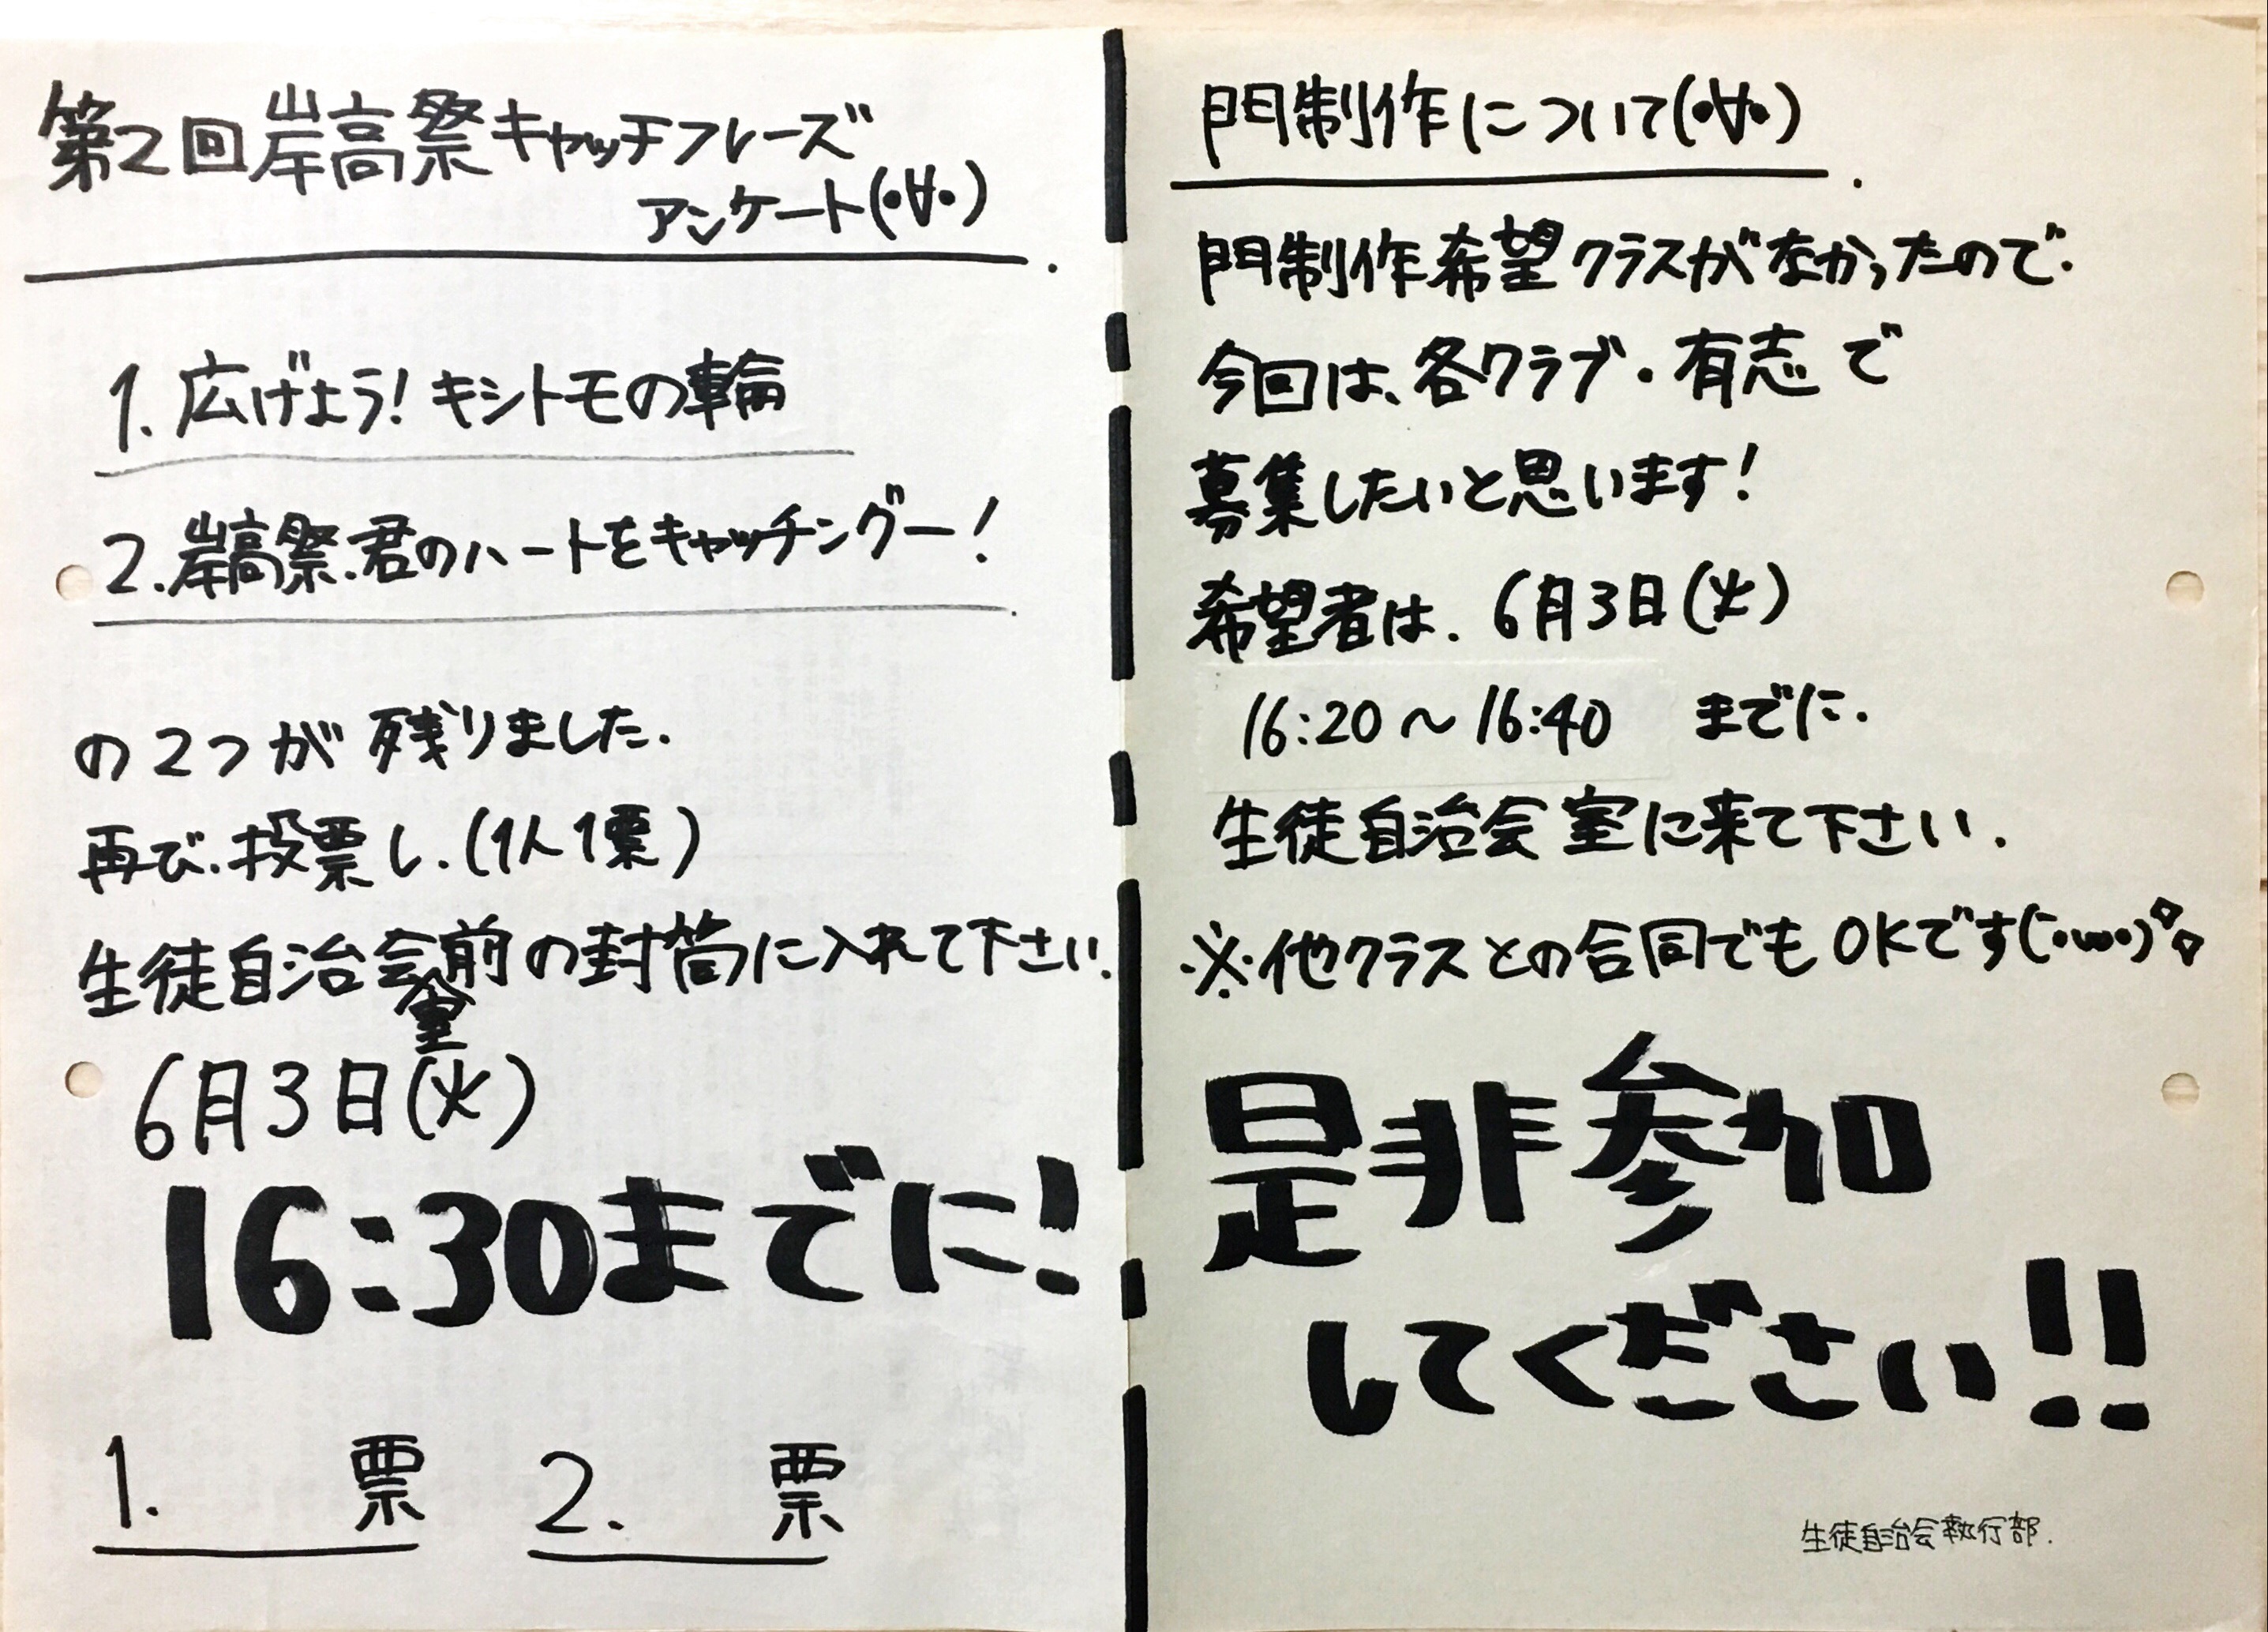 第2回岸高祭キャッチフレーズ
アンケート(•∀•)
1. 広げよう! キシトモの輪
2. 岸高祭、君のハートをキャッチングー!
の2つが残りました.
再び、投票し、(1人1票)
生徒自治会室前の封筒に入れて下さい.
6月3日(火)
16:30までに!
1. 票 2. 票
門制作について(•∀•)
門制作希望クラスがなかったので、
今回は、各クラブ・有志で
募集したいと思います!
希望者は、6月3日(火)
16:20〜16:40 までに、
生徒自治会室に来て下さい.
※他クラスとの合同でもOKです(•ω•)
是非参加
してください!!
生徒自治会執行部.